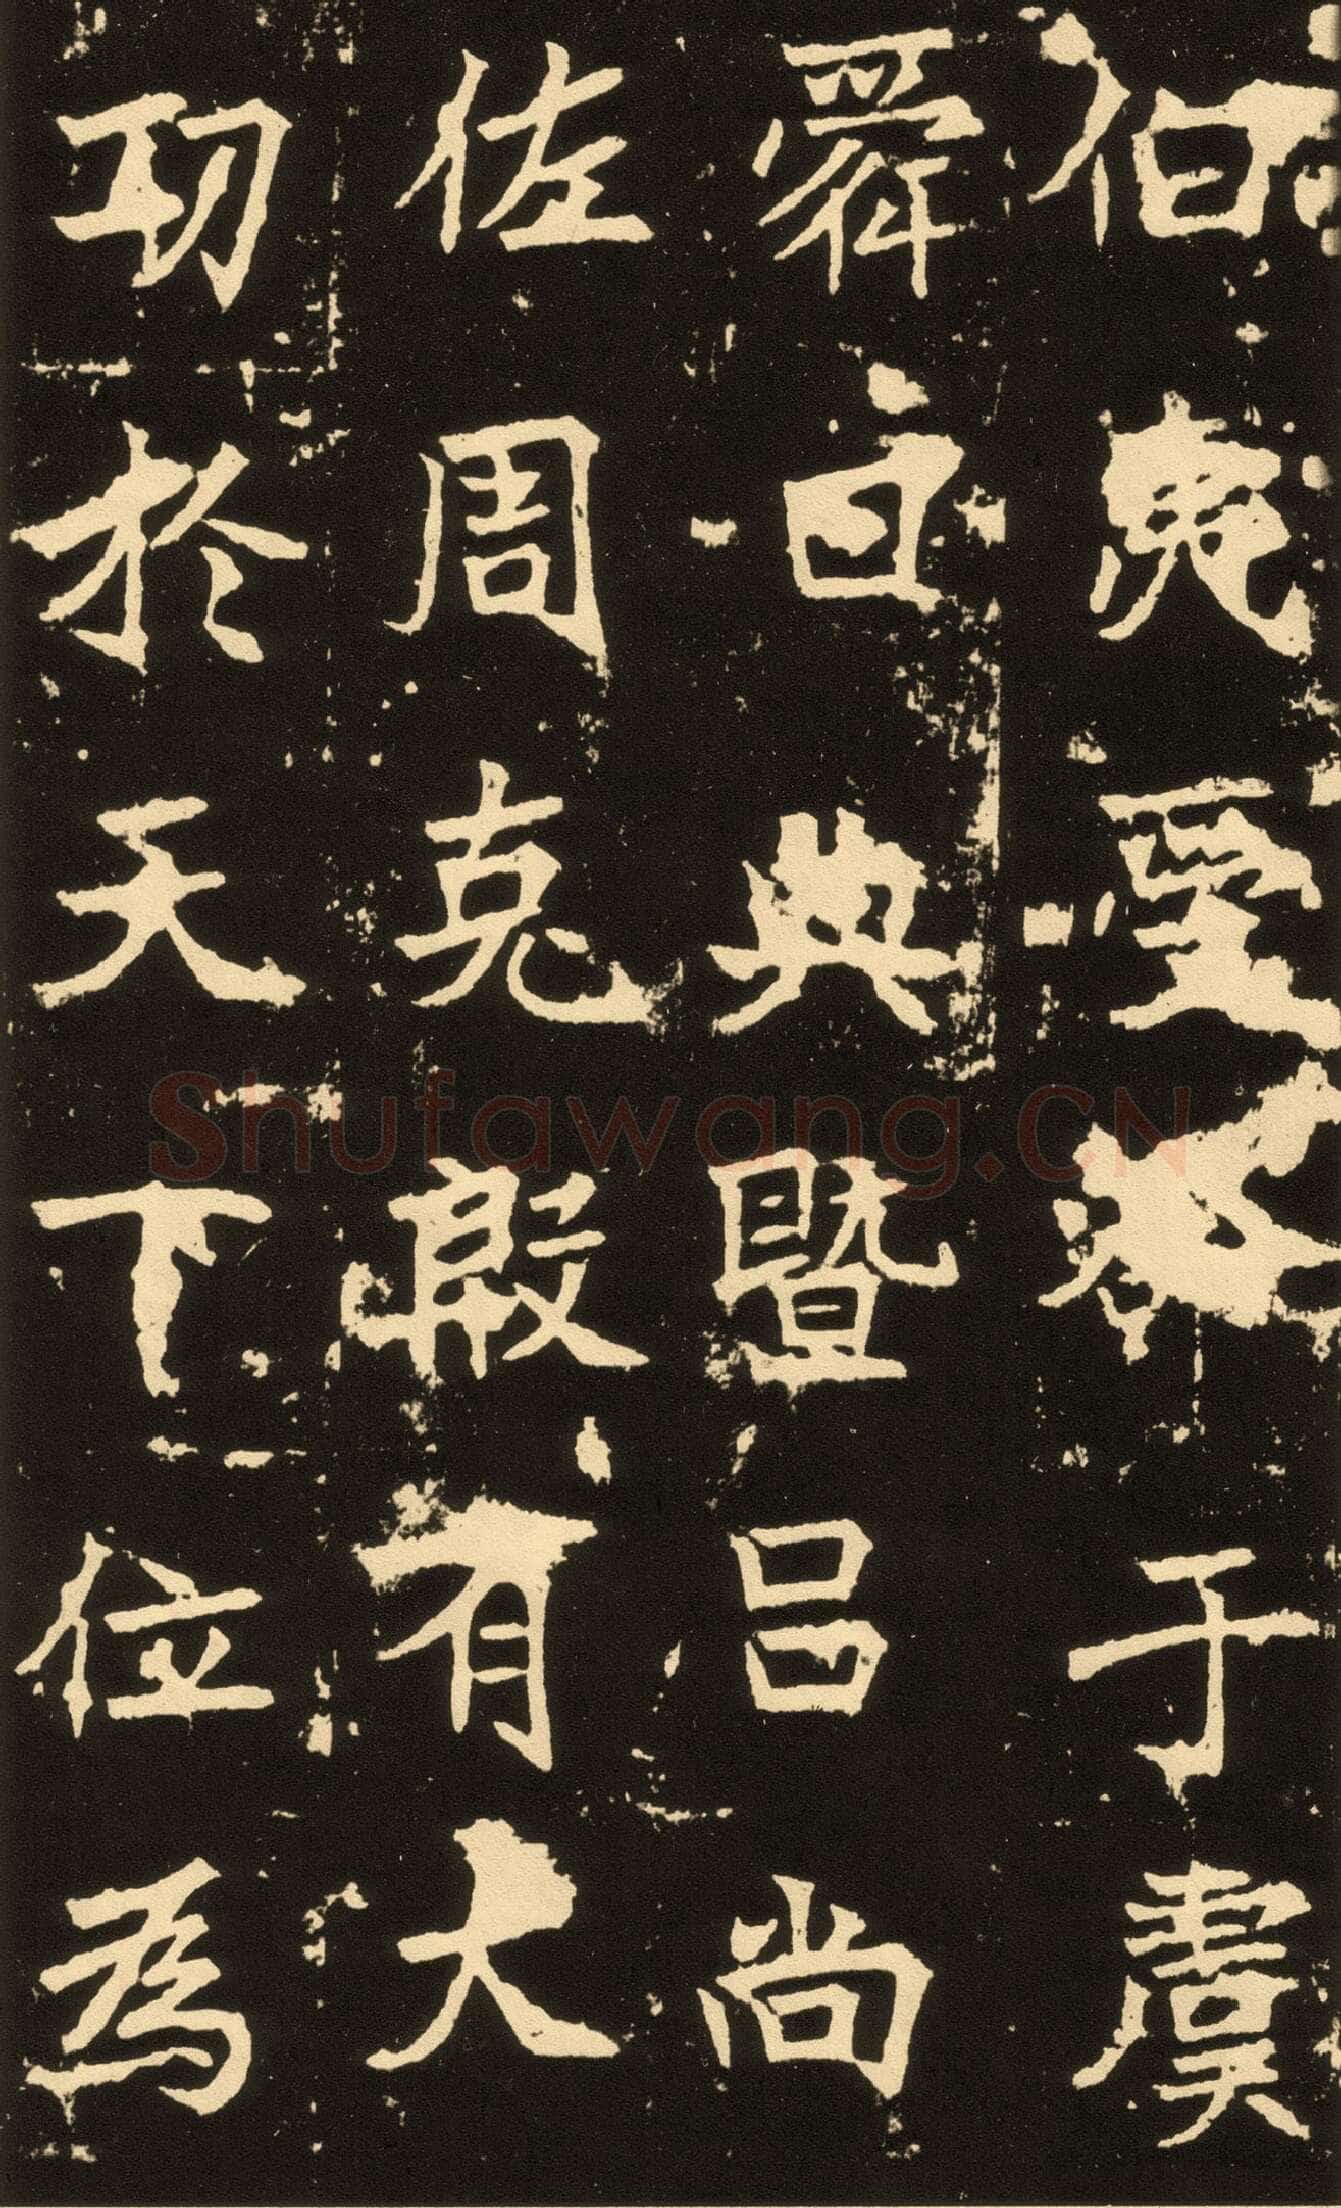 伯夷受
于虞
舜曰典暨吕尚
佐周克殷有大
功於天下位為
Shufawang.CN